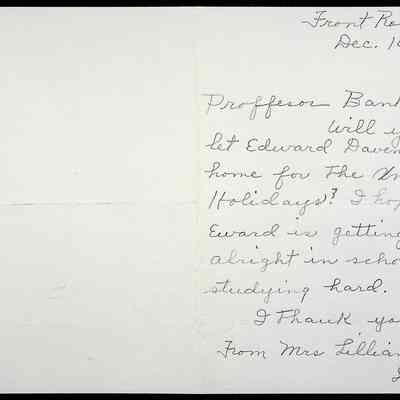 Front Ro
Dec. 1
Proffesor Bank
Will y
let Edward Daven
home for The Xm
Holidays? I hop
Eward is getting
alright in scho
studying hard.
I Thank yo
From Mrs Lillian